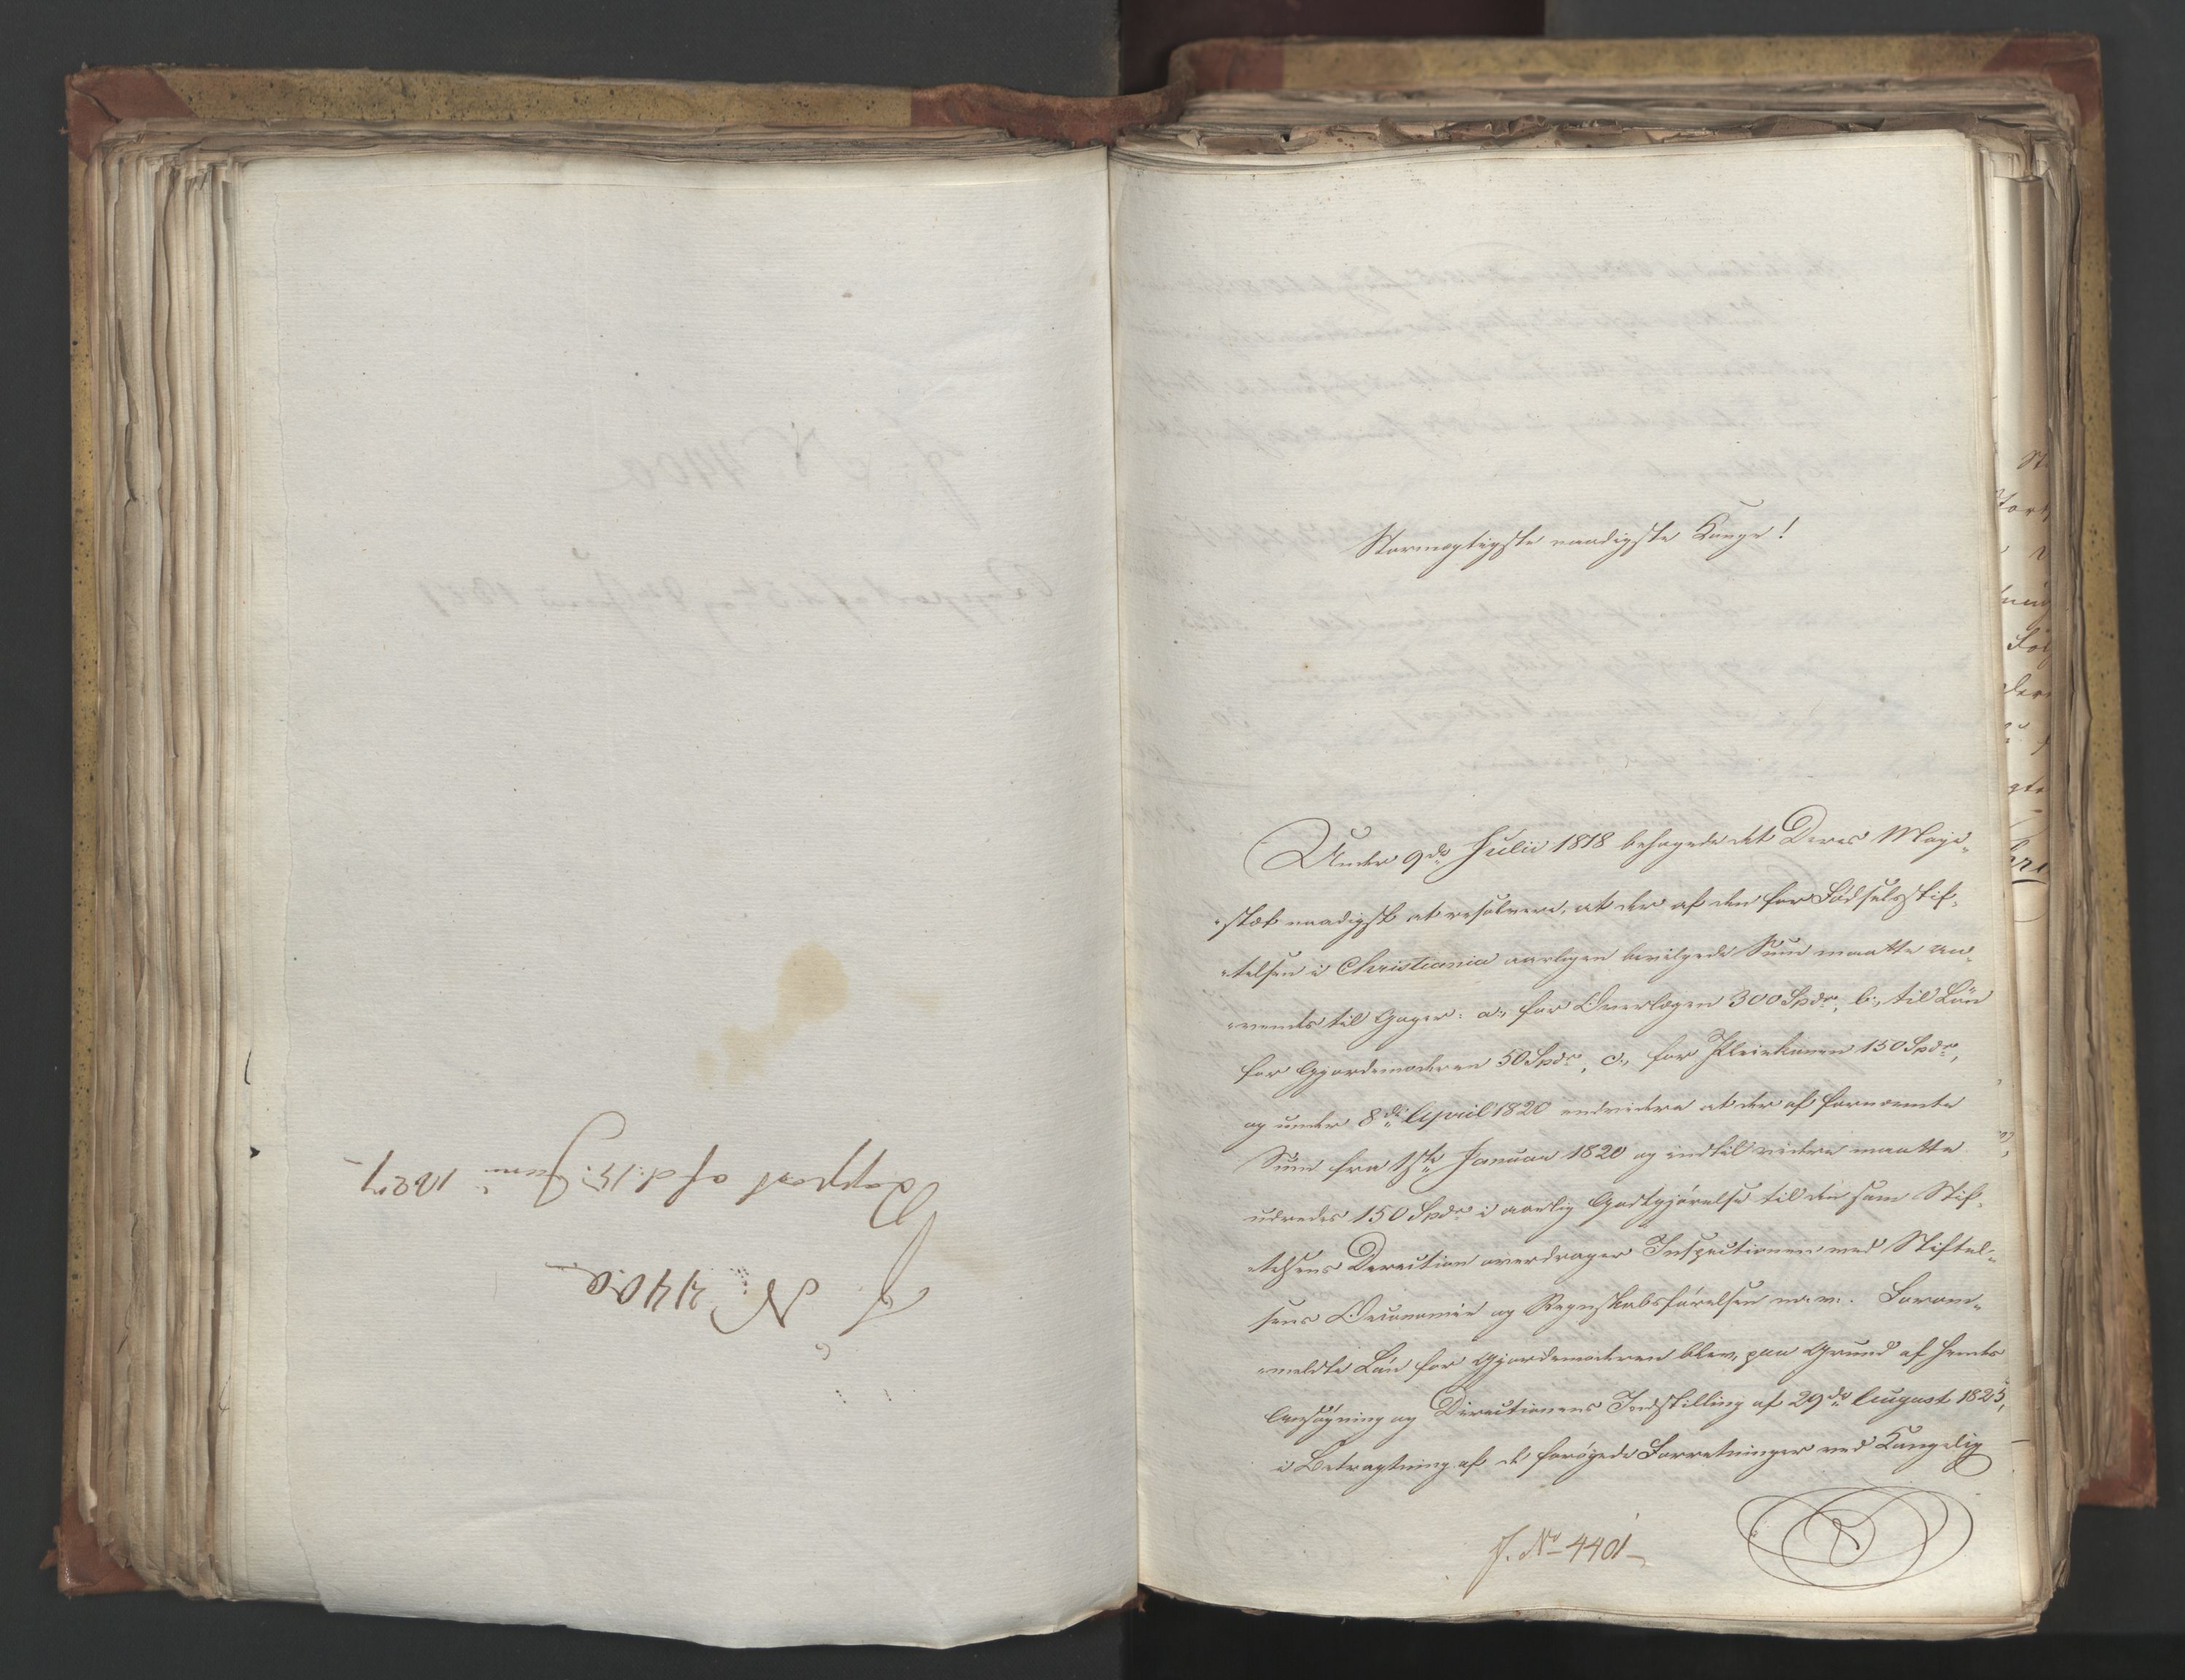 J. N: 440a
Rapport af d: 15 Juni 1827
Stormægtigste naadigste Konge!
Under 9de Julii 1818 behagede det Deres Maje-
stæt naadigst at resolvere, at der af den for Fødselsstif-
telsen i Christiania aarligen bevilgede Sum maatte an-
vendes til Gager: a, for Overlægen 300 Spdr, b, til Løn
for Gjordemoderen 50 Spdr, c, for Pleiekonen 150 Spdr,
og under 8de April 1820 endvidere at der af fornævnte
Sum fra 1ste Januar 1820 og indtil videre maatte
udredes 150 Spdr i aarlig Godtgjørelse til den som Stif-
telsens Direction overdrager Inspectionen med Stiftel-
sens Oeconomie og Regnskabsførelsen m. v. Foran-
meldte Løn for Gjordemoderen blev, paa Grund af hendes
Ansøgning og Directionens Indstilling af 29de August 1825,
i Betragtning af de forøgede Forretninger ved Kongelig
J. No 4401